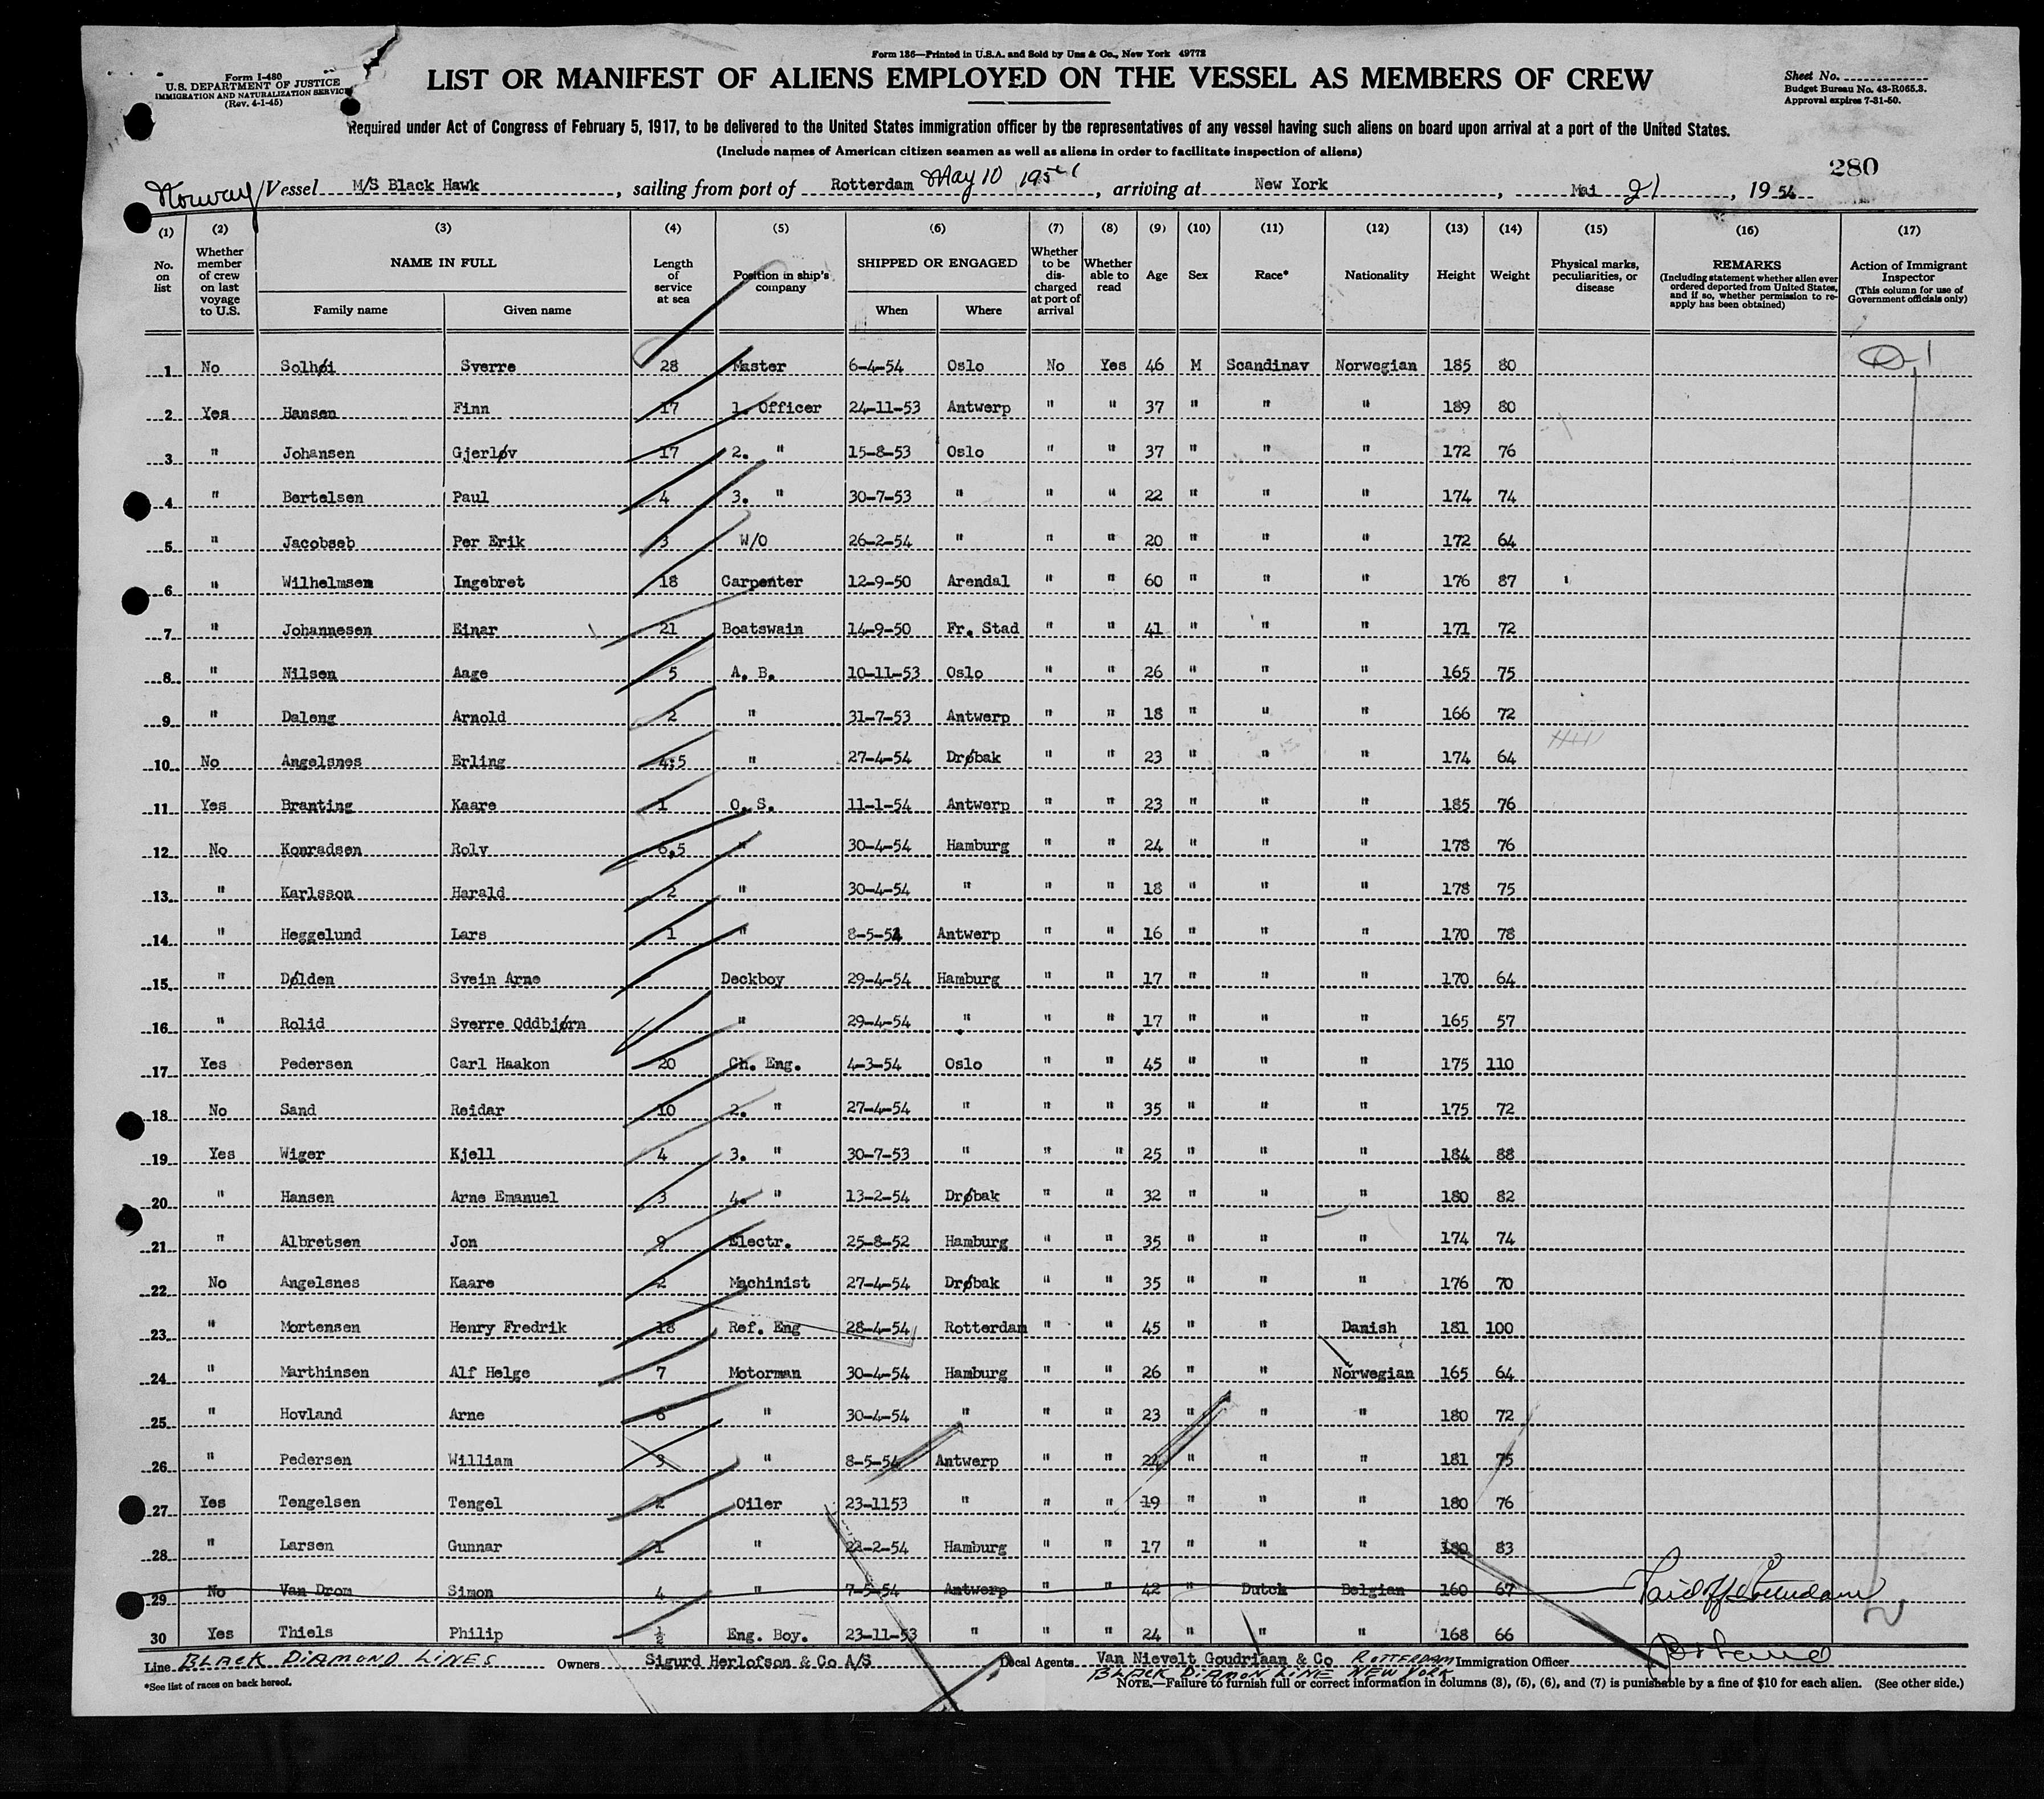 Form 136—Printed in U.S.A. and Sold by Unz & Co., New York 49772
Form I-480
U.S. DEPARTMENT OF JUSTICE
IMMIGRATION AND NATURALIZATION SERVICE
(Rev. 4-1-45)
LIST OR MANIFEST OF ALIENS EMPLOYED ON THE VESSEL AS MEMBERS OF CREW
Sheet No.
Budget Bureau No. 43-R065.3.
Approval expires 7-31-50.
Required under Act of Congress of February 5, 1917, to be delivered to the United States immigration officer by the representatives of any vessel having such aliens on board upon arrival at a port of the United States.
(Include names of American citizen seamen as well as aliens in order to facilitate inspection of aliens)
280
Norway / Vessel M/S Black Hawk, sailing from port of Rotterdam May 10 1954, arriving at New York, Mai 21, 19 54
(1) No. on list (2) Whether member of crew on last voyage to U.S. (3) NAME IN FULL Family name Given name (4) Length of service at sea (5) Position in ship's company (6) SHIPPED OR ENGAGED When Where (7) Whether to be discharged at port of arrival (8) Whether able to read (9) Age (10) Sex (11) Race* (12) Nationality (13) Height (14) Weight (15) Physical marks, peculiarities, or disease (16) REMARKS (Including statement whether alien ever ordered deported from United States, and if so, whether permission to reapply has been obtained) (17) Action of Immigrant Inspector (This column for use of Government officials only)
1 No Solhøi Sverre 28 Master 6-4-54 Oslo No Yes 46 M Scandinav Norwegian 185 80
2 Yes Hansen Finn 17 1. Officer 24-11-53 Antwerp " " 37 " " " 189 80
3 " Johansen Gjerløv 17 2. " 15-8-53 Oslo " " 37 " " " 172 76
4 " Bertelsen Paul 4 3. " 30-7-53 " " " 22 " " " 174 74
5 " Jacobseb Per Erik 3 W/O 26-2-54 " " " 20 " " " 172 64
6 " Wilhelmsen Ingebret 18 Carpenter 12-9-50 Arendal " " 60 " " " 176 87
7 " Johannesen Einar 21 Boatswain 14-9-50 Fr. Stad " " 41 " " " 171 72
8 " Nilsen Aage 5 A. B. 10-11-53 Oslo " " 26 " " " 165 75
9 " Daleng Arnold 2 " 31-7-53 Antwerp " " 18 " " " 166 72
10 No Angelsnes Erling 4,5 " 27-4-54 Drøbak " " 23 " " " 174 64
11 Yes Branting Kaare 1 O. S. 11-1-54 Antwerp " " 23 " " " 185 76
12 No Konradsen Rolv 6,5 " 30-4-54 Hamburg " " 24 " " " 178 76
13 " Karlsson Harald 2 " 30-4-54 " " " 18 " " " 178 75
14 " Heggelund Lars 1 " 8-5-54 Antwerp " " 16 " " " 170 78
15 " Dølden Svein Arne Deckboy 29-4-54 Hamburg " " 17 " " " 170 64
16 " Rolid Sverre Oddbjørn " 29-4-54 " " " 17 " " " 165 57
17 Yes Pedersen Carl Haakon 20 Ch. Eng. 4-3-54 Oslo " " 45 " " " 175 110
18 No Sand Reidar 10 2. " 27-4-54 " " " 35 " " " 175 72
19 Yes Wiger Kjell 4 3. " 30-7-53 " " " 25 " " " 184 88
20 " Hansen Arne Emanuel 3 4. " 13-2-54 Drøbak " " 32 " " " 180 82
21 " Albretsen Jon 9 Electr. 25-8-52 Hamburg " " 35 " " " 174 74
22 No Angelsnes Kaare 2 Machinist 27-4-54 Drøbak " " 35 " " " 176 70
23 " Mortensen Henry Fredrik 18 Ref. Eng 28-4-54 Rotterdam " " 45 " " Danish 181 100
24 " Marthinsen Alf Helge 7 Motorman 30-4-54 Hamburg " " 26 " " Norwegian 165 64
25 " Hovland Arne 6 " 30-4-54 " " " 23 " " " 180 72
26 " Pedersen William 3 " 8-5-54 Antwerp " " 21 " " " 181 75
27 Yes Tengelsen Tengel 2 Oiler 23-1153 " " " 19 " " " 180 76
28 " Larsen Gunnar 1 " 22-2-54 Hamburg " " 17 " " " 180 83
29 No Van Drom Simon 4 " 7-5-54 Antwerp " " 42 " Dutch Belgian 160 67 Paid off Rotterdam
30 Yes Thiels Philip ½ Eng. Boy. 23-11-53 " " " 24 " " " 168 66
Line BLACK DIAMOND LINES Owners Sigurd Herlofson & Co A/S Local Agents Van Nievelt Goudriaan & Co ROTTERDAM Immigration Officer
BLACK DIAMON LINE NEW YORK
*See list of races on back hereof.
NOTE.—Failure to furnish full or correct information in columns (3), (5), (6), and (7) is punishable by a fine of $10 for each alien. (See other side.)